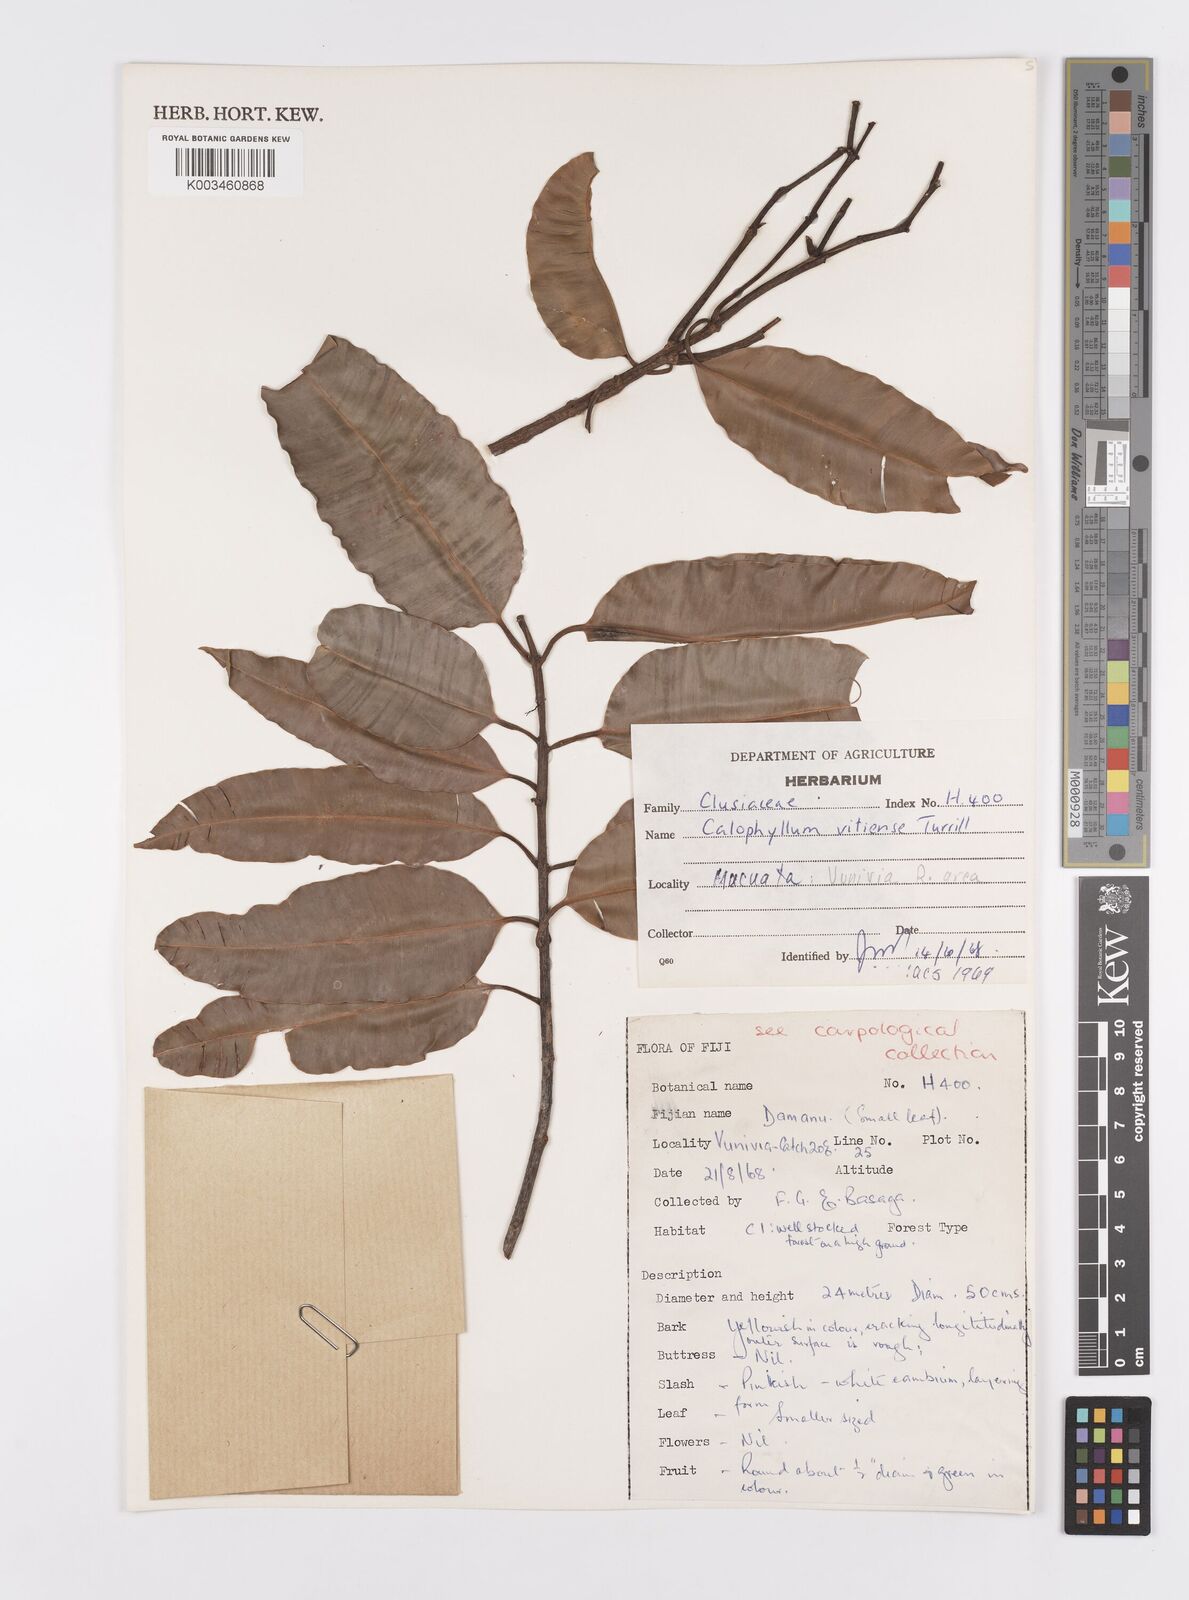 HERB. HORT. KEW.
ROYAL BOTANIC GARDENS KEW
K003460868
DEPARTMENT OF AGRICULTURE
HERBARIUM
Family Clusiaceae Index No. H.400
Name Calophyllum vitiense Turrill
Locality Macuata: Vunivia R. area
Collector Date
Q60 Identified by 14/6/68.
!ACS 1969
see carpological
collection
FLORA OF FIJI
Botanical name No. H400.
Fijian name Damanu. (Small leaf).
Locality Vunivia-Catch 208. Line No. 25 Plot No.
Date 21/8/68. Altitude
Collected by F. G. & Basaga.
Habitat C1: well stocked Forest Type
forest on a high ground.
Description
Diameter and height 24 metres Diam. 50 cms.
Bark Yellowish in colour, cracking longitudinally
outer surface is rough;
Buttress - Nil.
Slash - Pinkish - white cambium, layering
form
Leaf - Smaller sized
Flowers - Nil.
Fruit - Round about ½" diam & green in
colour.
inches
centimetres
Don Williams
M000928
Density
Royal Botanic Gardens
Kew
copyright reserved
0 1 2 3 4 5 6 7 8 9 10
cm